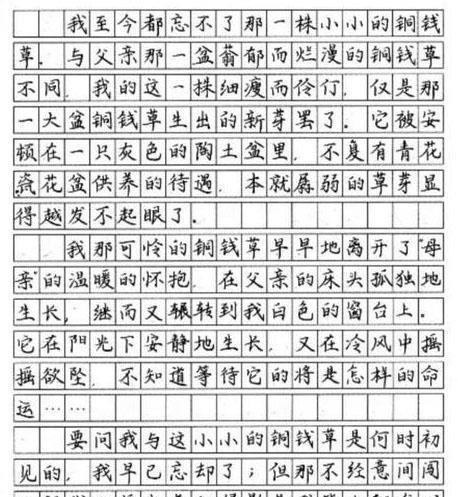 我至今都忘不了那一株小小的铜钱
草。与父亲那一盆蓊郁而烂漫的铜钱草
不同，我的这一株细瘦而伶仃，仅是那
一大盆铜钱草生出的新芽罢了。它被安
顿在一只灰色的陶土盆里，不复有青花
瓷花盆供养的待遇，本就孱弱的草芽显
得越发不起眼了。
我那可怜的铜钱草早早地离开了“母
亲”的温暖的怀抱，在父亲的床头孤独地
生长，继而又辗转到我白色的窗台上。
它在阳光下安静地生长，又在冷风中摇
摇欲坠，不知道等待它的将是怎样的命
运……
要问我与这小小的铜钱草是何时初
见的，我早已忘却了；但那不经意间闯